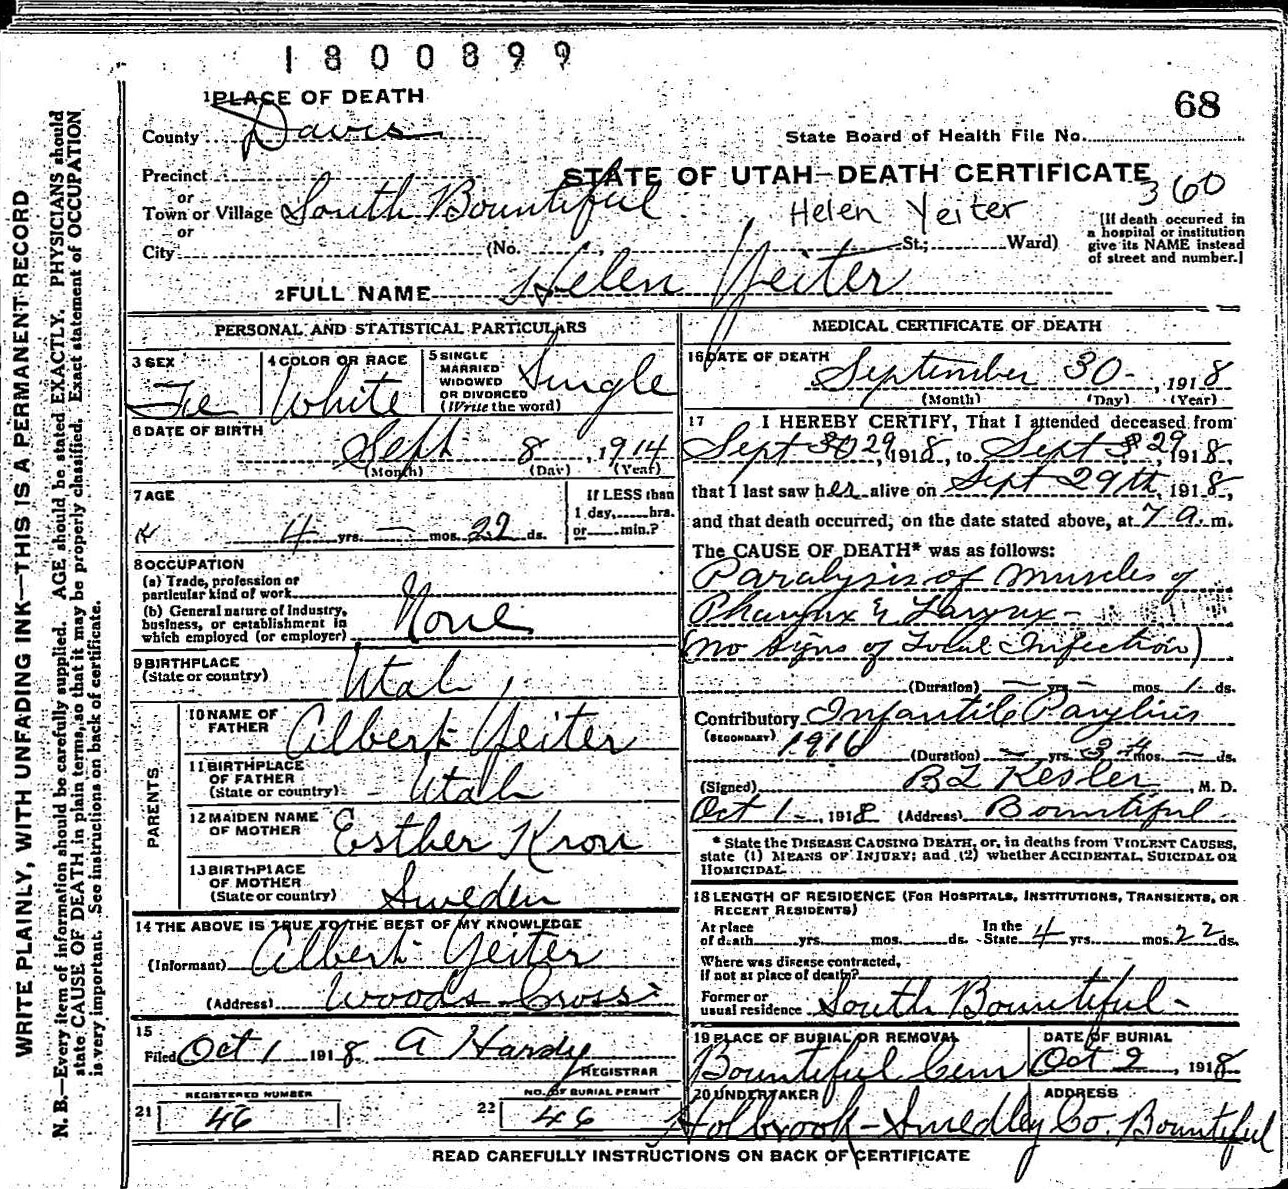 1800899
68
1 PLACE OF DEATH
County Davis
State Board of Health File No.
Precinct
or
STATE OF UTAH—DEATH CERTIFICATE
360
Town or Village South Bountiful
Helen Yeiter
or
City (No. St.; Ward)
[If death occurred in
a hospital or institution
give its NAME instead
of street and number.]
2 FULL NAME Helen Yeiter
PERSONAL AND STATISTICAL PARTICULARS
3 SEX Fe
4 COLOR OR RACE White
5 SINGLE
MARRIED
WIDOWED
OR DIVORCED
(Write the word)
Single
6 DATE OF BIRTH
Sept 8, 1914
(Month) (Day) (Year)
7 AGE
4 yrs. — mos. 22 ds.
If LESS than
1 day, hrs.
or min.?
8 OCCUPATION
(a) Trade, profession or
particular kind of work
(b) General nature of industry,
business, or establishment in
which employed (or employer)
None
9 BIRTHPLACE
(State or country)
Utah
PARENTS
10 NAME OF
FATHER
Albert Yeiter
11 BIRTHPLACE
OF FATHER
(State or country)
Utah
12 MAIDEN NAME
OF MOTHER
Esther Kron
13 BIRTHPLACE
OF MOTHER
(State or country)
Sweden
14 THE ABOVE IS TRUE TO THE BEST OF MY KNOWLEDGE
(Informant) Albert Yeiter
(Address) Woods Cross
15
Filed Oct 1 1918 A Hardy
REGISTRAR
REGISTERED NUMBER
21 46
NO. OF BURIAL PERMIT
22 46
MEDICAL CERTIFICATE OF DEATH
16 DATE OF DEATH
September 30 - , 1918
(Month) (Day) (Year)
17 I HEREBY CERTIFY, That I attended deceased from
Sept 30 29, 1918, to Sept 29, 1918,
that I last saw her alive on Sept 29th, 1918,
and that death occurred, on the date stated above, at 7 a. m.
The CAUSE OF DEATH* was as follows:
Paralysis of Muscles of
Pharynx & Larynx -
(no signs of Local Infection)
(Duration) — yrs. — mos. 1 ds.
Contributory Infantile Parylisis
(SECONDARY) 1916
(Duration) — yrs. 3-4 mos. — ds.
(Signed) BL Kesler, M. D.
Oct 1 -, 1918 (Address) Bountiful
* State the DISEASE CAUSING DEATH, or, in deaths from VIOLENT CAUSES,
state (1) MEANS OF INJURY; and (2) whether ACCIDENTAL, SUICIDAL OR
HOMICIDAL.
18 LENGTH OF RESIDENCE (FOR HOSPITALS, INSTITUTIONS, TRANSIENTS, OR
RECENT RESIDENTS)
At place
of death yrs. mos. ds.
In the
State 4 yrs. mos. 22 ds.
Where was disease contracted,
if not at place of death?
Former or
usual residence South Bountiful -
19 PLACE OF BURIAL OR REMOVAL
Bountiful Cem
DATE OF BURIAL
Oct 2, 1918
20 UNDERTAKER
ADDRESS
Holbrook-Smedley Co. Bountiful
READ CAREFULLY INSTRUCTIONS ON BACK OF CERTIFICATE
WRITE PLAINLY, WITH UNFADING INK—THIS IS A PERMANENT RECORD
N. B.—Every item of information should be carefully supplied. AGE should be stated EXACTLY. PHYSICIANS should
state CAUSE OF DEATH in plain terms, so that it may be properly classified. Exact statement of OCCUPATION
is very important. See instructions on back of certificate.